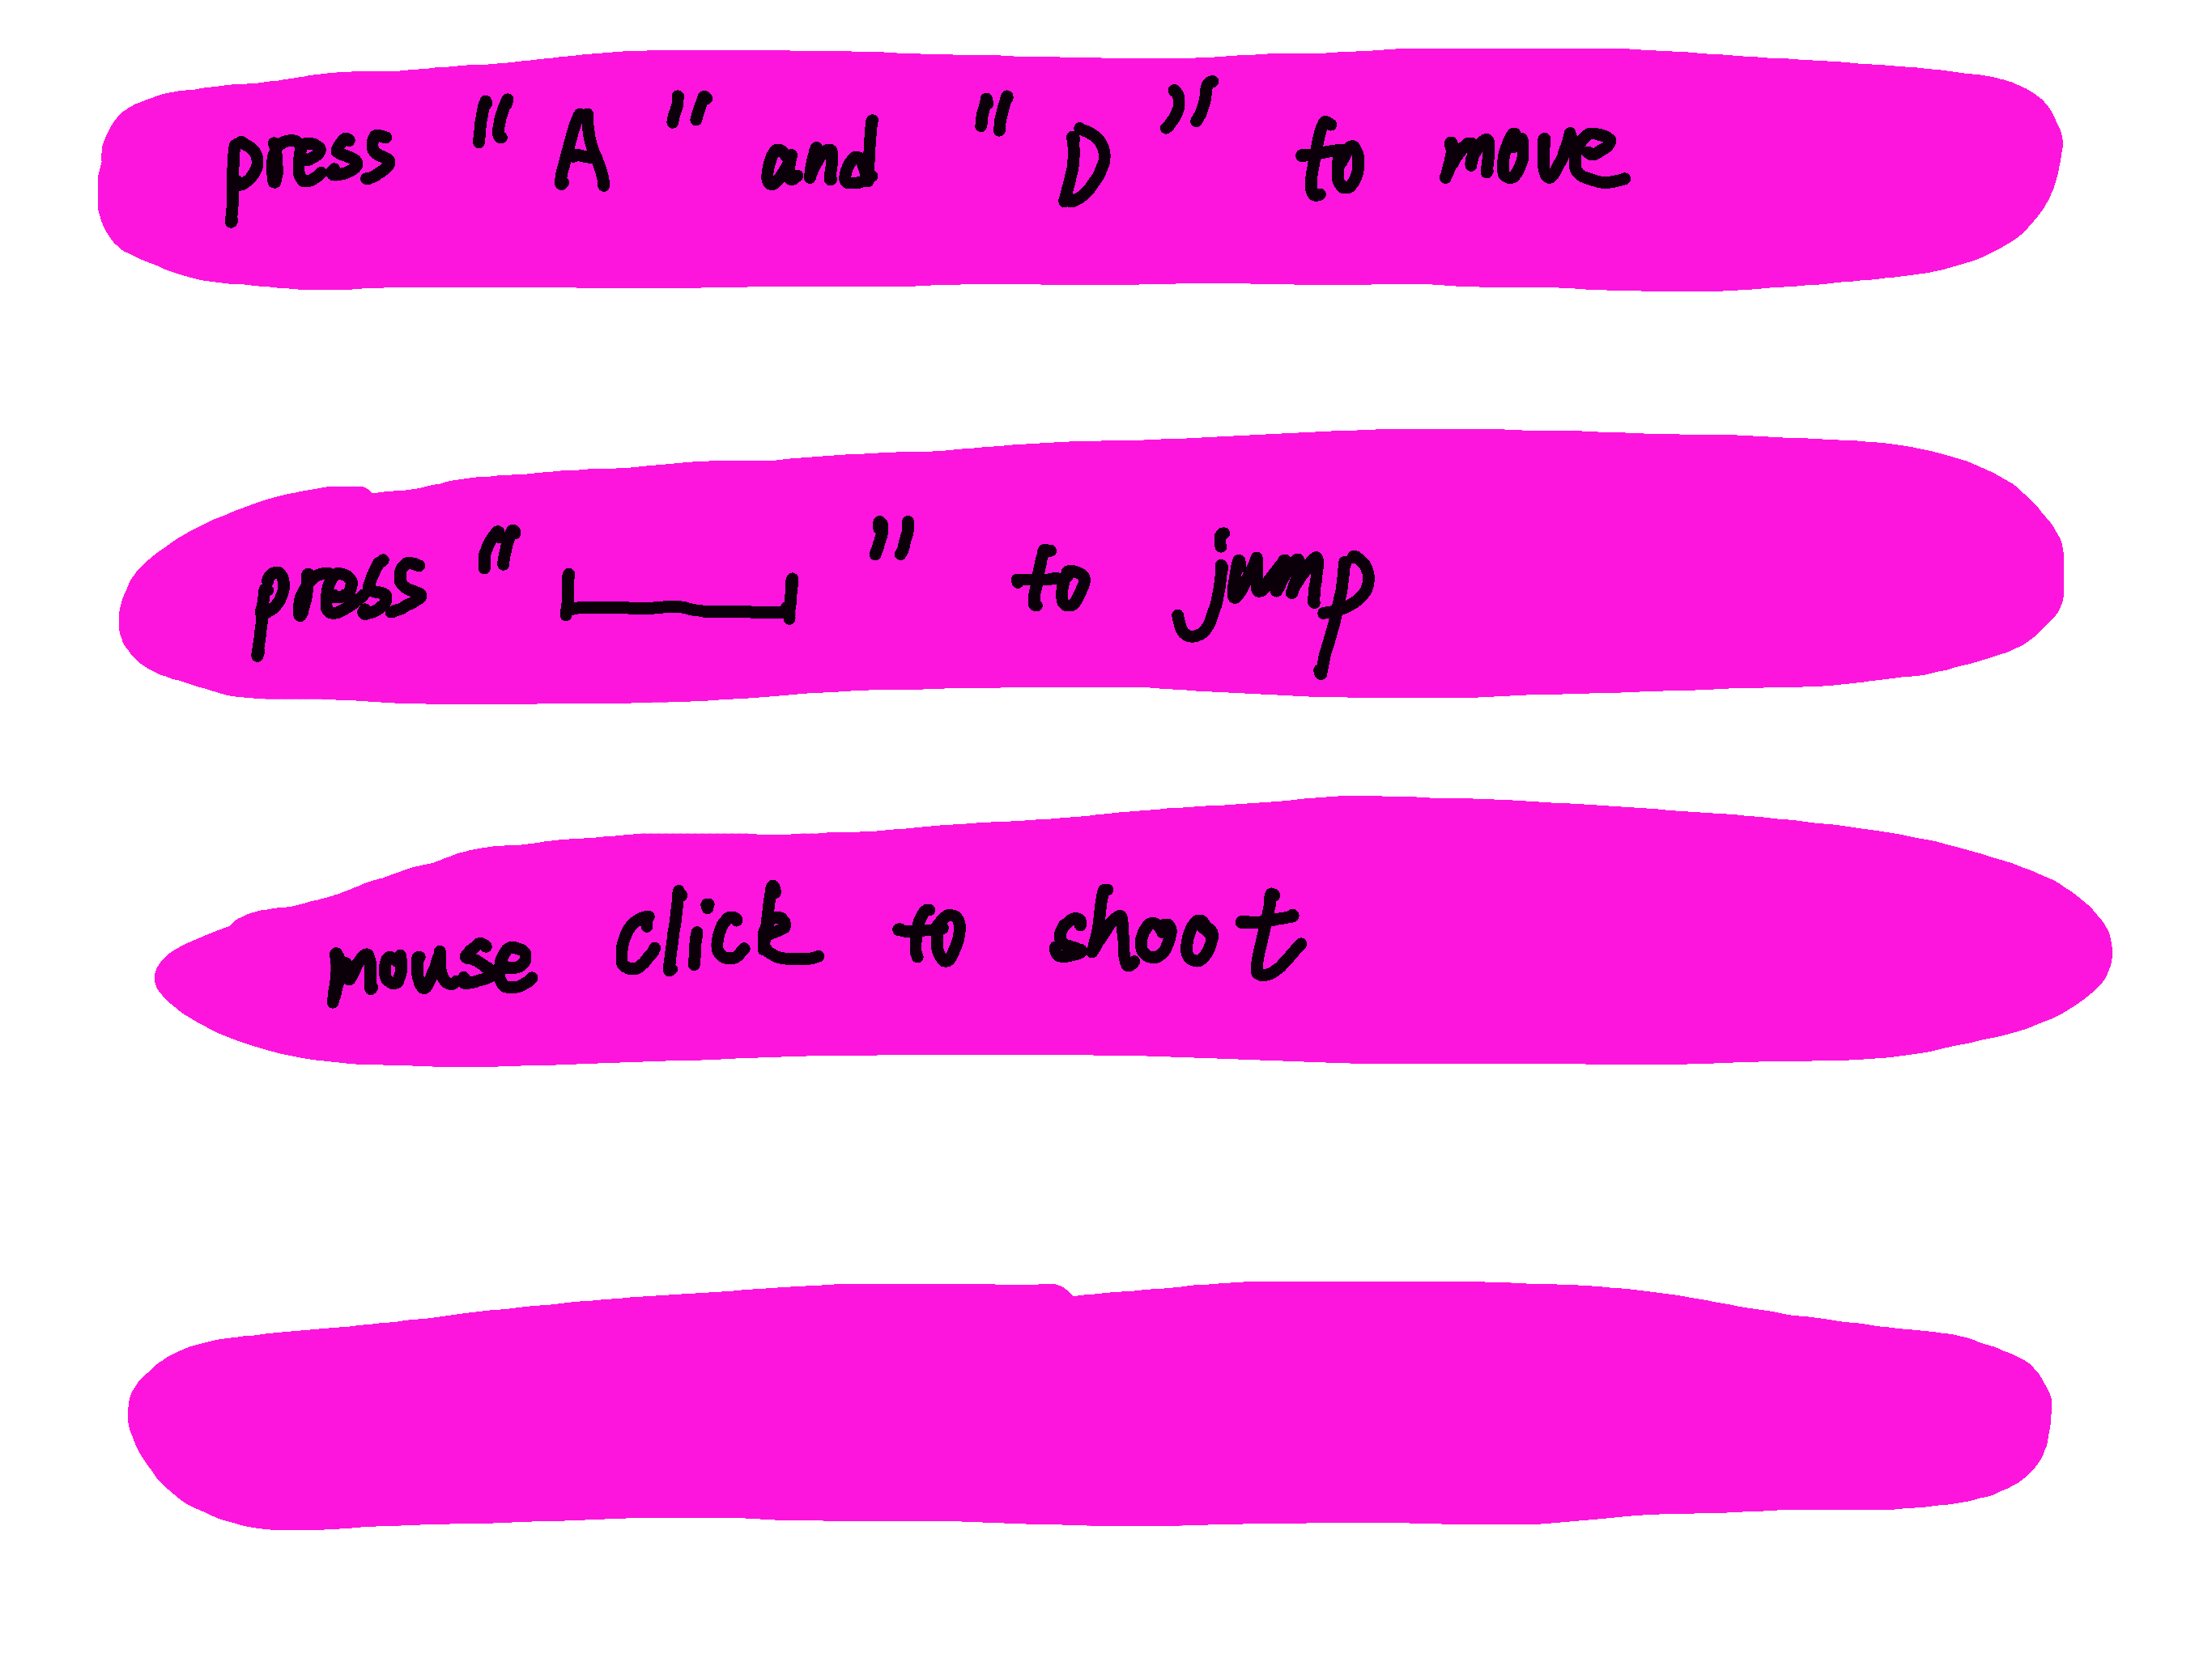 press "A" and "D" to move
press "⎵" to jump
mouse click to shoot